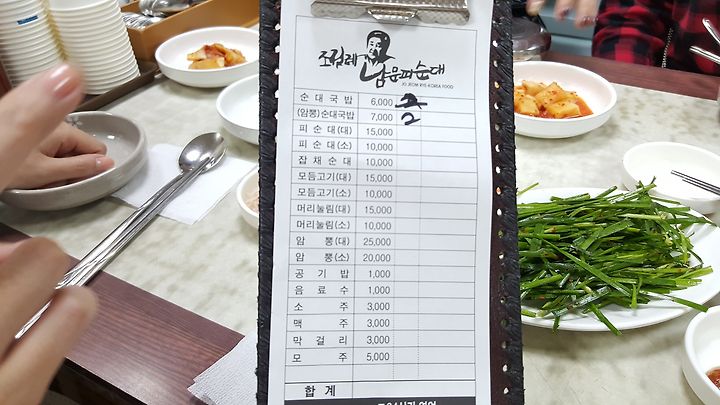 조점례 남문피순대
JO JEOM RYE KOREA FOOD
순대국밥 6,000
(암뽕)순대국밥 7,000
피순대(대) 15,000
피순대(소) 10,000
잡채순대 10,000
모듬고기(대) 15,000
모듬고기(소) 10,000
머리눌림(대) 15,000
머리눌림(소) 10,000
암뽕(대) 25,000
암뽕(소) 20,000
공기밥 1,000
음료수 1,000
소주 3,000
맥주 3,000
막걸리 3,000
모주 5,000
합계
24시간 영업